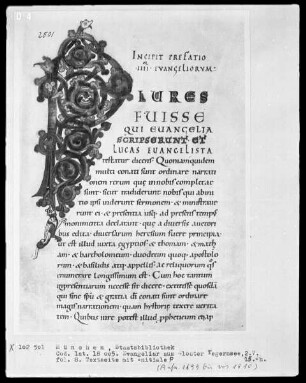 2501
INCIPIT PREFATIO
IIII EVANGELIORVM
PLURES
FUISSE
QUI EUANGELIA
SCRIPSERUNT ET
LUCAS EUANGELISTA
testatur dicens Quoniam quidem
multi conati sunt ordinare narrati
onem rerum que in nobis complete
sunt sicut tradiderunt nobis qui ab ini
tio ipsi uiderunt sermonem & ministraue
runt ei & presentia usq; ad presens temp
monumenta declarant que a diuersis auctori
bus edita diuersarum heresium fuere principia
ut est illud iuxta egyptios & thomam & math
am & bartholomeum duodecim quoq; apostolo
rum & basilidis atq; appellis ac reliquorum quos
enumerare longissimum est Cum hoc tantum
inpresentiarum necesse sit dicere extitisse quosdā
qui sine spū & gratia dī conati sunt ordinare
magis narrationem quam historie texere uerita
tem Quibus iure potest illud propheticum
X 102 501 München, Staatsbibliothek
Cod. lat. 18 005. Evangeliar aus Kloster Tegernsee,
fol. 8. Textseite mit Initiale P